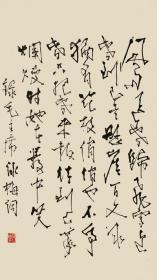 风雨送春归飞雪迎
春到已是悬崖百丈冰
犹有花枝俏俏也不争
春只把春来报待到山花
烂漫时她在丛中笑
录毛主席咏梅词